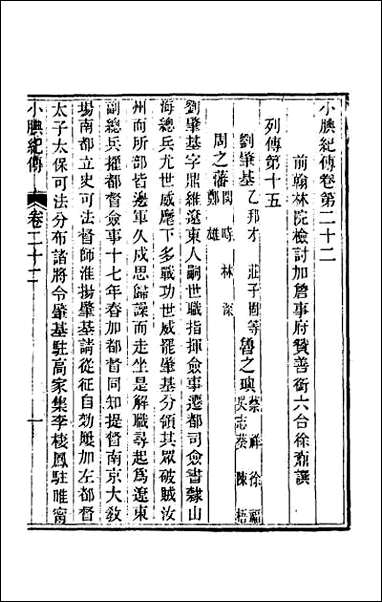 小腆紀傳卷第二十二
前翰林院檢討加詹事府贊善銜六合徐鼒譔
列傳第十五
劉肇基乙邦才 莊子固等 魯之璵蔡祥 徐福 吳志葵 陳梧
周之藩閔時 林深 鄭雄
劉肇基字鼎維遼東人嗣世職指揮僉事遷都司僉書隸山
海總兵尤世威麾下多戰功世威罷肇基分領其眾破賊汝
州而所部皆邊軍久戍思歸譟而走坐是解職尋起爲遼東
副總兵擢都督僉事十七年春加都督同知提督南京大敎
場南都立史可法督師淮揚肇基請從征自効屢加左都督
太子太保可法分布諸將令肇基駐高家集李棲鳳駐睢寗
小腆紀傳 卷二十二 一